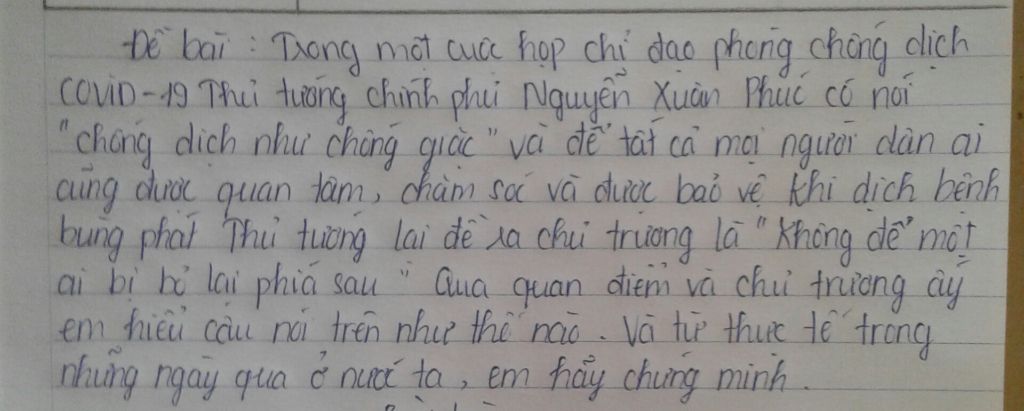 Đề bài : Trong một cuộc họp chỉ đạo phòng chống dịch
COVID-19 Thủ tướng chính phủ Nguyễn Xuân Phúc có nói
"chống dịch như chống giặc" và để tất cả mọi người dân ai
cũng được quan tâm, chăm sóc và được bảo vệ khi dịch bệnh
bùng phát Thủ tướng lại đề ra chủ trương là "Không để một
ai bị bỏ lại phía sau" Qua quan điểm và chủ trương ấy
em hiểu câu nói trên như thế nào. Và từ thực tế trong
những ngày qua ở nước ta, em hãy chứng minh.